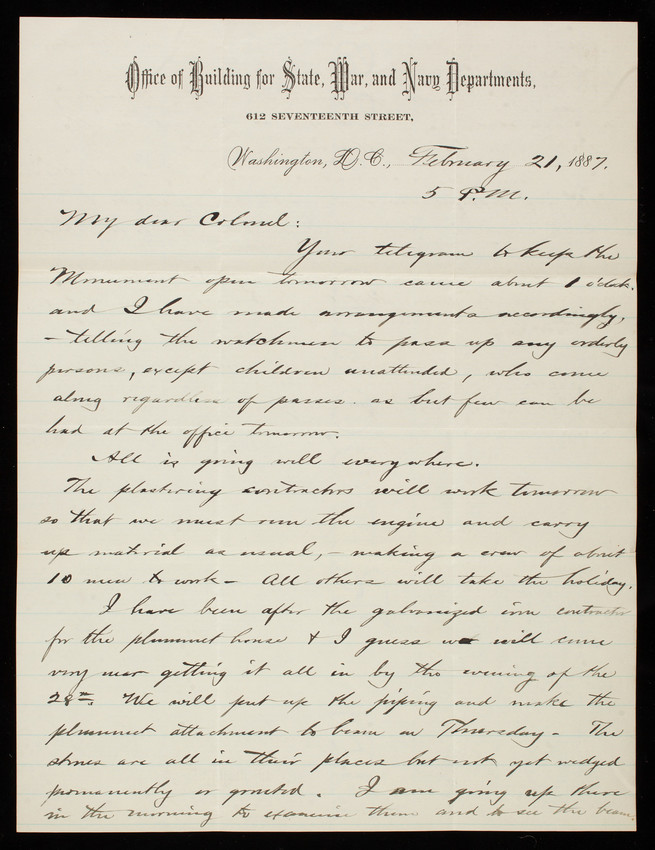 Office of Building for State, War, and Navy Departments,
612 SEVENTEENTH STREET,
Washington, D.C., February 21, 1887.
5 P.M.
My dear Colonel:
Your telegram to keep the
Monument open tomorrow came about 1 o'clock.
and I have made arrangements accordingly,
– telling the watchmen to pass up any orderly
persons, except children unattended, who come
along regardless of passes. as but few can be
had at the office tomorrow.
All is going well everywhere.
The plastering contractors will work tomorrow
so that we must run the engine and carry
up material as usual, – making a crew of about
10 men to work – All others will take the holiday.
I have been after the galvanized iron contractor
for the plummet house & I guess we will come
very near getting it all in by the evening of the
28th. We will put up the piping and make the
plummet attachment to beam on Thursday – The
stones are all in their places but not yet wedged
permanently or grouted. I am going up there
in the morning to examine them and to see the beam.